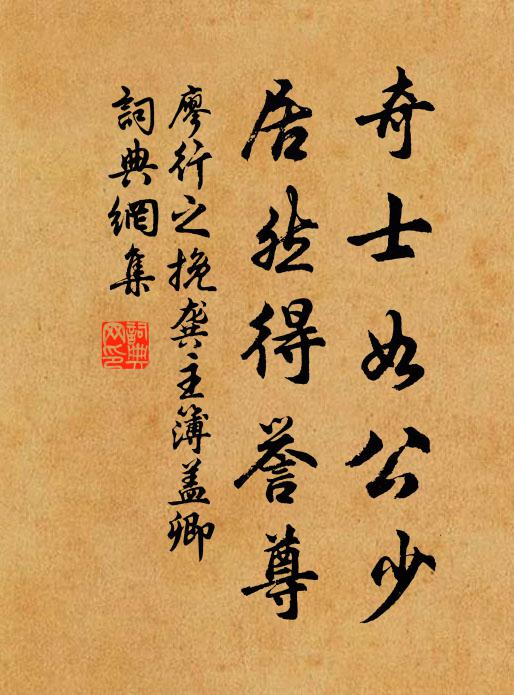 奇士如公少
居然得誉尊
廖行之挽龚主簿盖卿
詞典網集
詞典网印